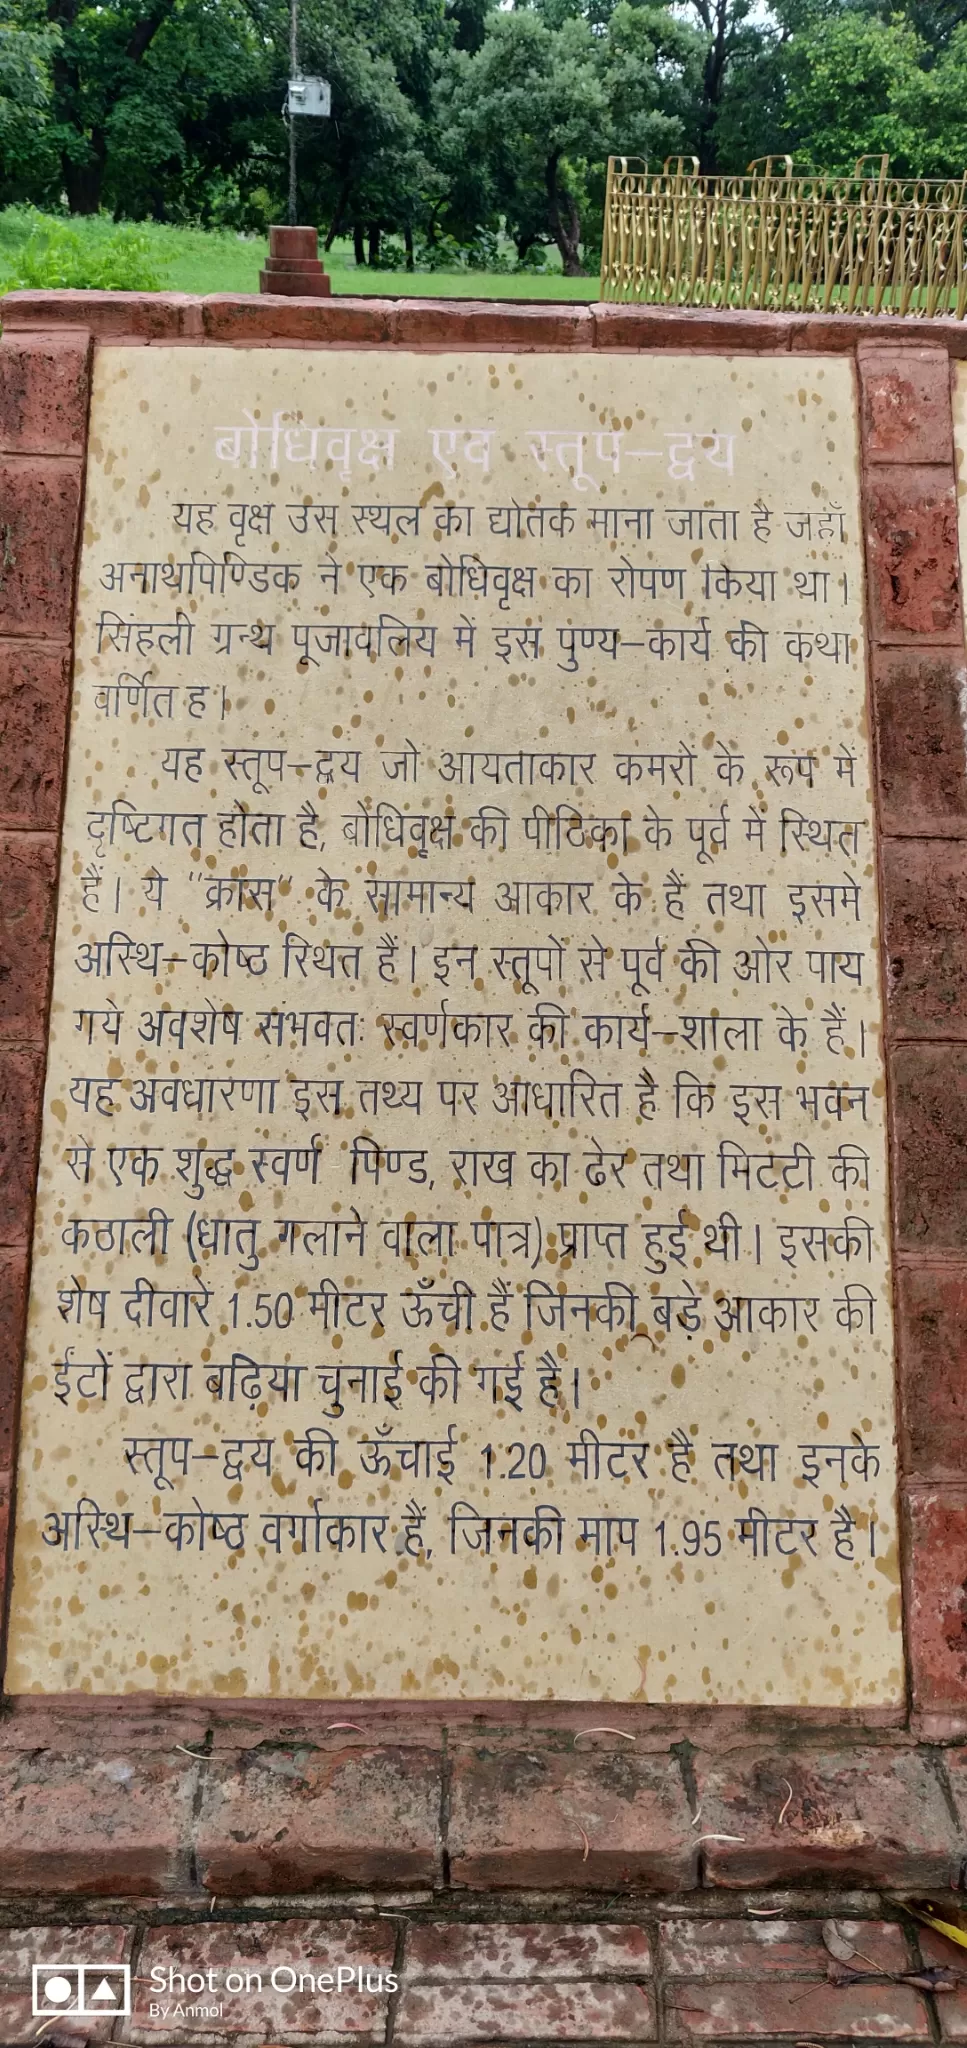 बोधिवृक्ष एव स्तूप–द्वय
यह वृक्ष उस स्थल का द्योतक माना जाता है जहाँ
अनाथपिण्डिक ने एक बोधिवृक्ष का रोपण किया था।
सिंहली ग्रन्थ पूजावलिय में इस पुण्य–कार्य की कथा
वर्णित ह।
यह स्तूप–द्वय जो आयताकार कमरों के रूप में
दृष्टिगत होता है, बोधिवृक्ष की पीठिका के पूर्व में स्थित
हैं। ये "क्रास" के सामान्य आकार के हैं तथा इसमे
अस्थि–कोष्ठ स्थित हैं। इन स्तूपों से पूर्व की ओर पाय
गये अवशेष संभवतः स्वर्णकार की कार्य–शाला के हैं।
यह अवधारणा इस तथ्य पर आधारित है कि इस भवन
से एक शुद्ध स्वर्ण पिण्ड, राख का ढेर तथा मिटटी की
कठाली (धातु गलाने वाला पात्र) प्राप्त हुई थी। इसकी
शेष दीवारें 1.50 मीटर ऊँची हैं जिनकी बड़े आकार की
ईंटों द्वारा बढ़िया चुनाई की गई है।
स्तूप–द्वय की ऊँचाई 1.20 मीटर है तथा इनके
अस्थि–कोष्ठ वर्गाकार हैं, जिनकी माप 1.95 मीटर है।
Shot on OnePlus
By Anmol